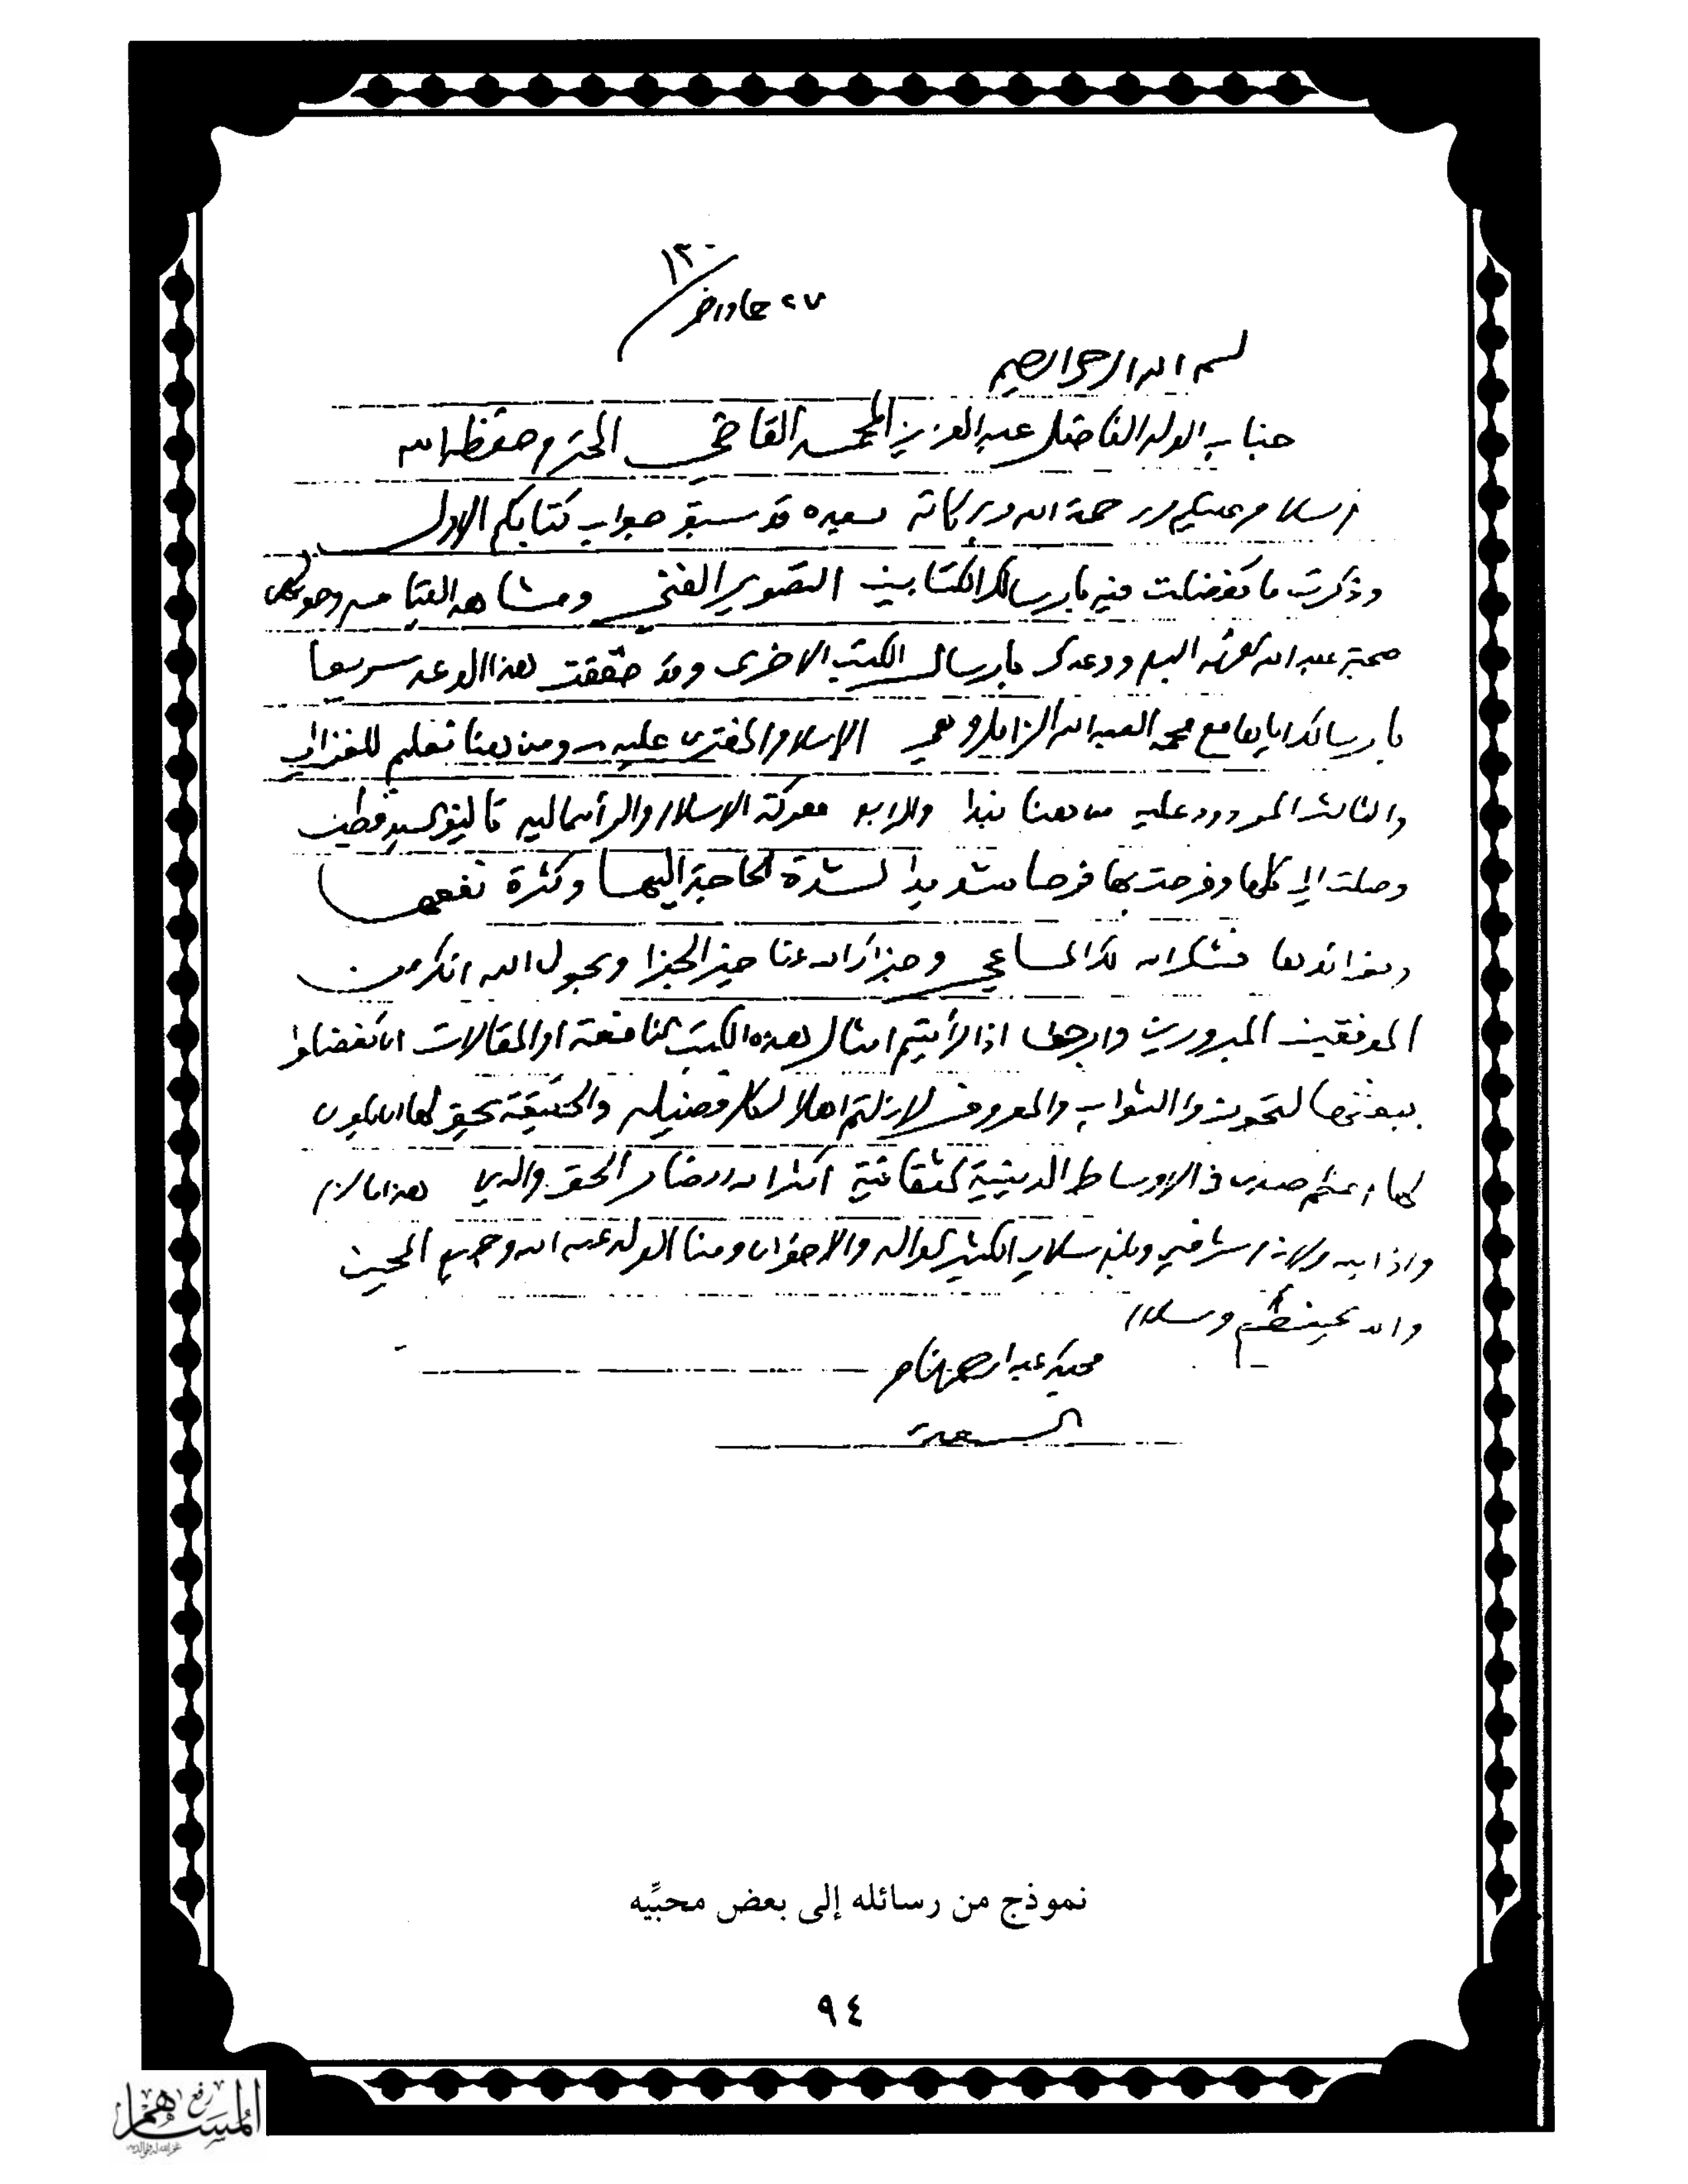 ٢٧ جماد آخر
بسم الله الرحمن الرحيم
جناب الولد الفاضل عبد العزيز المحمد القاضي المحترم حفظه الله
السلام عليكم ورحمة الله وبركاته بعده قد سبق جواب كتابكم الاول
وذكرت ما تفضلت فيه بارسالك الكتابين التصوير الفني ومشاهد القيامه
صحبة عبد الله ووعدك بارسال الكتب الاخرى وقد حققت هذا الوعد سريعا
بارسالك اياها مع محمد العبد الله الزامل وهي الاسلام المفترى عليه ومن هنا نعلم للغزالي
والثالث المردود عليه من هنا نبدأ والرابع معركة الاسلام والرأسماليه تأليف السيد قطب
وصلت الي كلها وفرحت بها فرحا شديدا لشدة الحاجة اليها وكثرة نفعها
وفوائدها فشكر الله لك المساعي وجزاك الله عنا خير الجزا ونحمد الله انك من
الموفقين المبرورين وارجوك اذا رأيتم امثال هذه الكتب النافعة او المقالات ان تفضلوا
ببعثها لتحوزوا الثواب والمعروف لا زلتم اهلا لكل فضيله والحقيقة يحق لها ان يكون
لها اعظم صدى في الاوساط الدينية الثقافية اكثر الله انصار الحق والدين هذا ما لزم
واذا بدا لازم شرفني وبلغ سلامي الكثير الوالد والاخوان ومنا الولد عبد الله وجميع المحبين
والله يحفظكم وسلام
محبك عبد الرحمن الناصر
السعدي
نموذج من رسائله إلى بعض محبِّيه
٩٤
رفع
المساهم